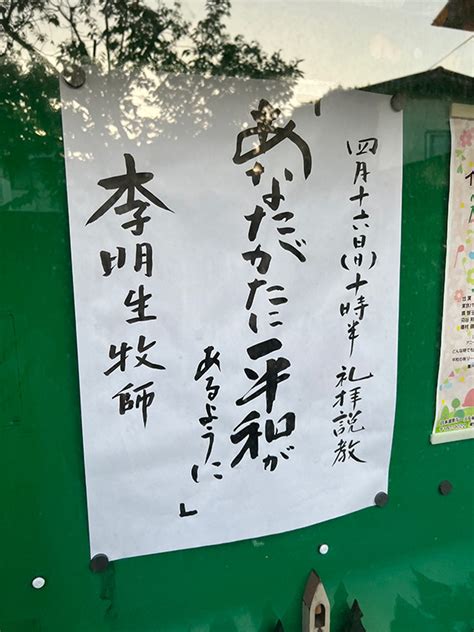 四月十六日(日)十時半 礼拝説教
「あなたがたに平和が
あるように」
李明生牧師